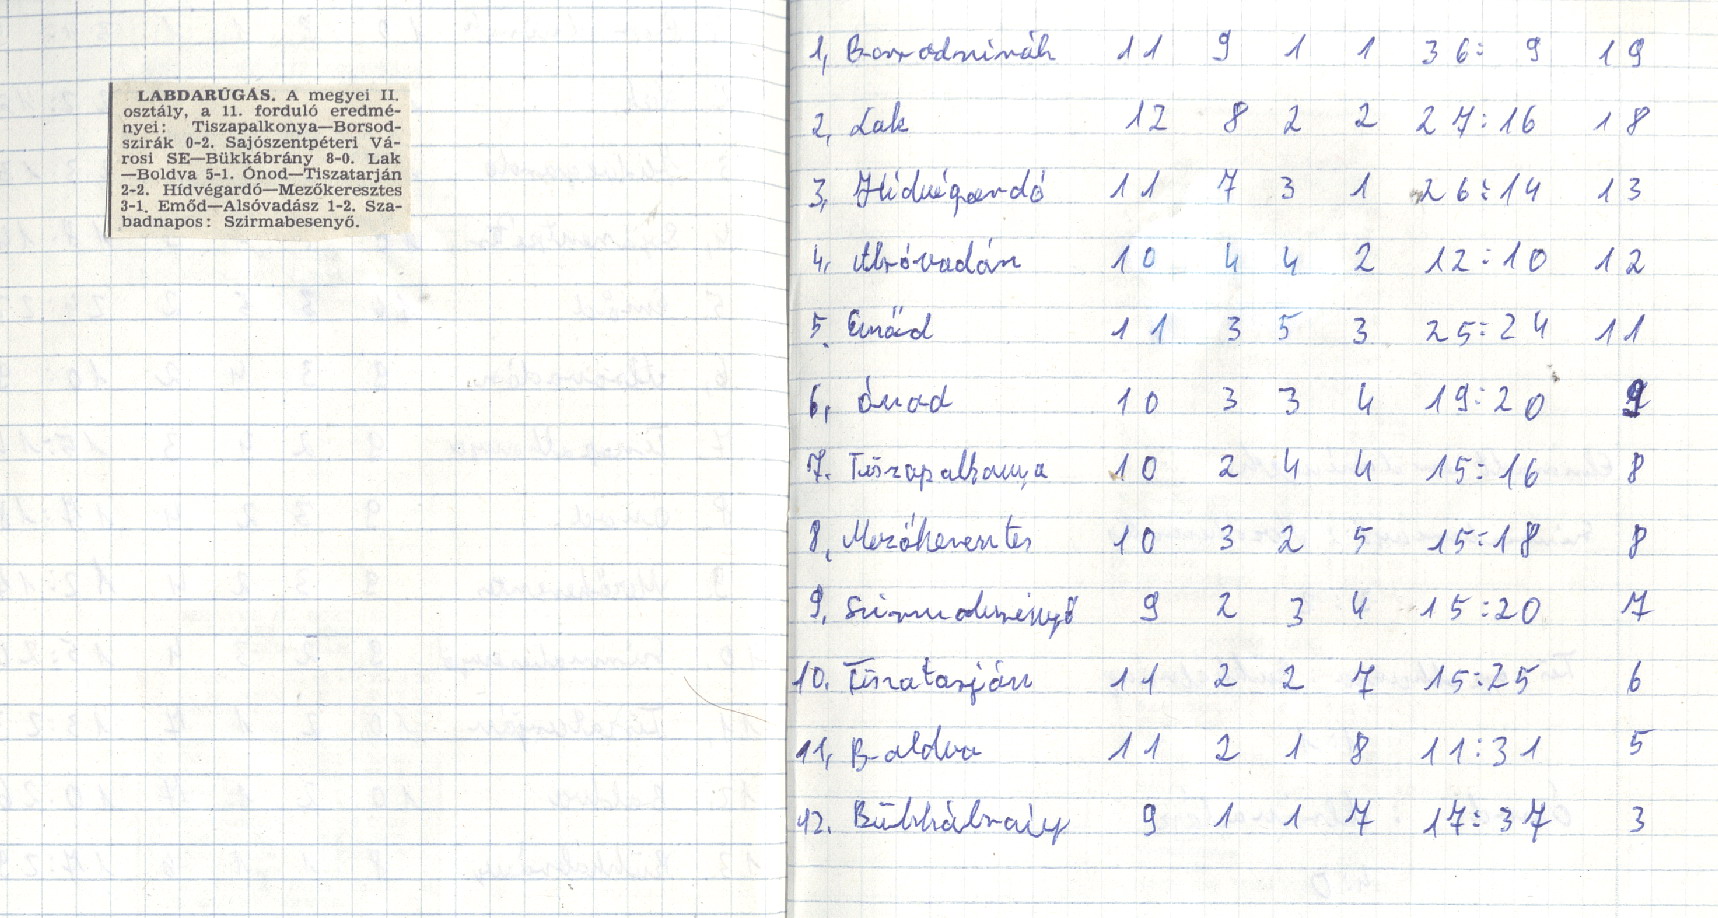 LABDARÚGÁS. A megyei II.
osztály, a 11. forduló eredmé-
nyei: Tiszapalkonya—Borsod-
szirák 0-2. Sajószentpéteri Vá-
rosi SE—Bükkábrány 8-0. Lak
—Boldva 5-1. Ónod—Tiszatarján
2-2. Hídvégardó—Mezőkeresztes
3-1. Emőd—Alsóvadász 1-2. Sza-
badnapos: Szirmabesenyő.
1, Borsodszirák 11 9 1 1 36: 9 19
2, Lak 12 8 2 2 27:16 18
3, Hídvégardó 11 7 3 1 26:14 13
4, Alsóvadász 10 4 4 2 12:10 12
5. Emőd 11 3 5 3 25:24 11
6, Ónod 10 3 3 4 19:20 9
7. Tiszapalkonya 10 2 4 4 15:16 8
8, Mezőkeresztes 10 3 2 5 15:18 8
9, Szirmabesenyő 9 2 3 4 15:20 7
10. Tiszatarján 11 2 2 7 15:25 6
11, Boldva 11 2 1 8 11:31 5
12. Bükkábrány 9 1 1 7 17:37 3